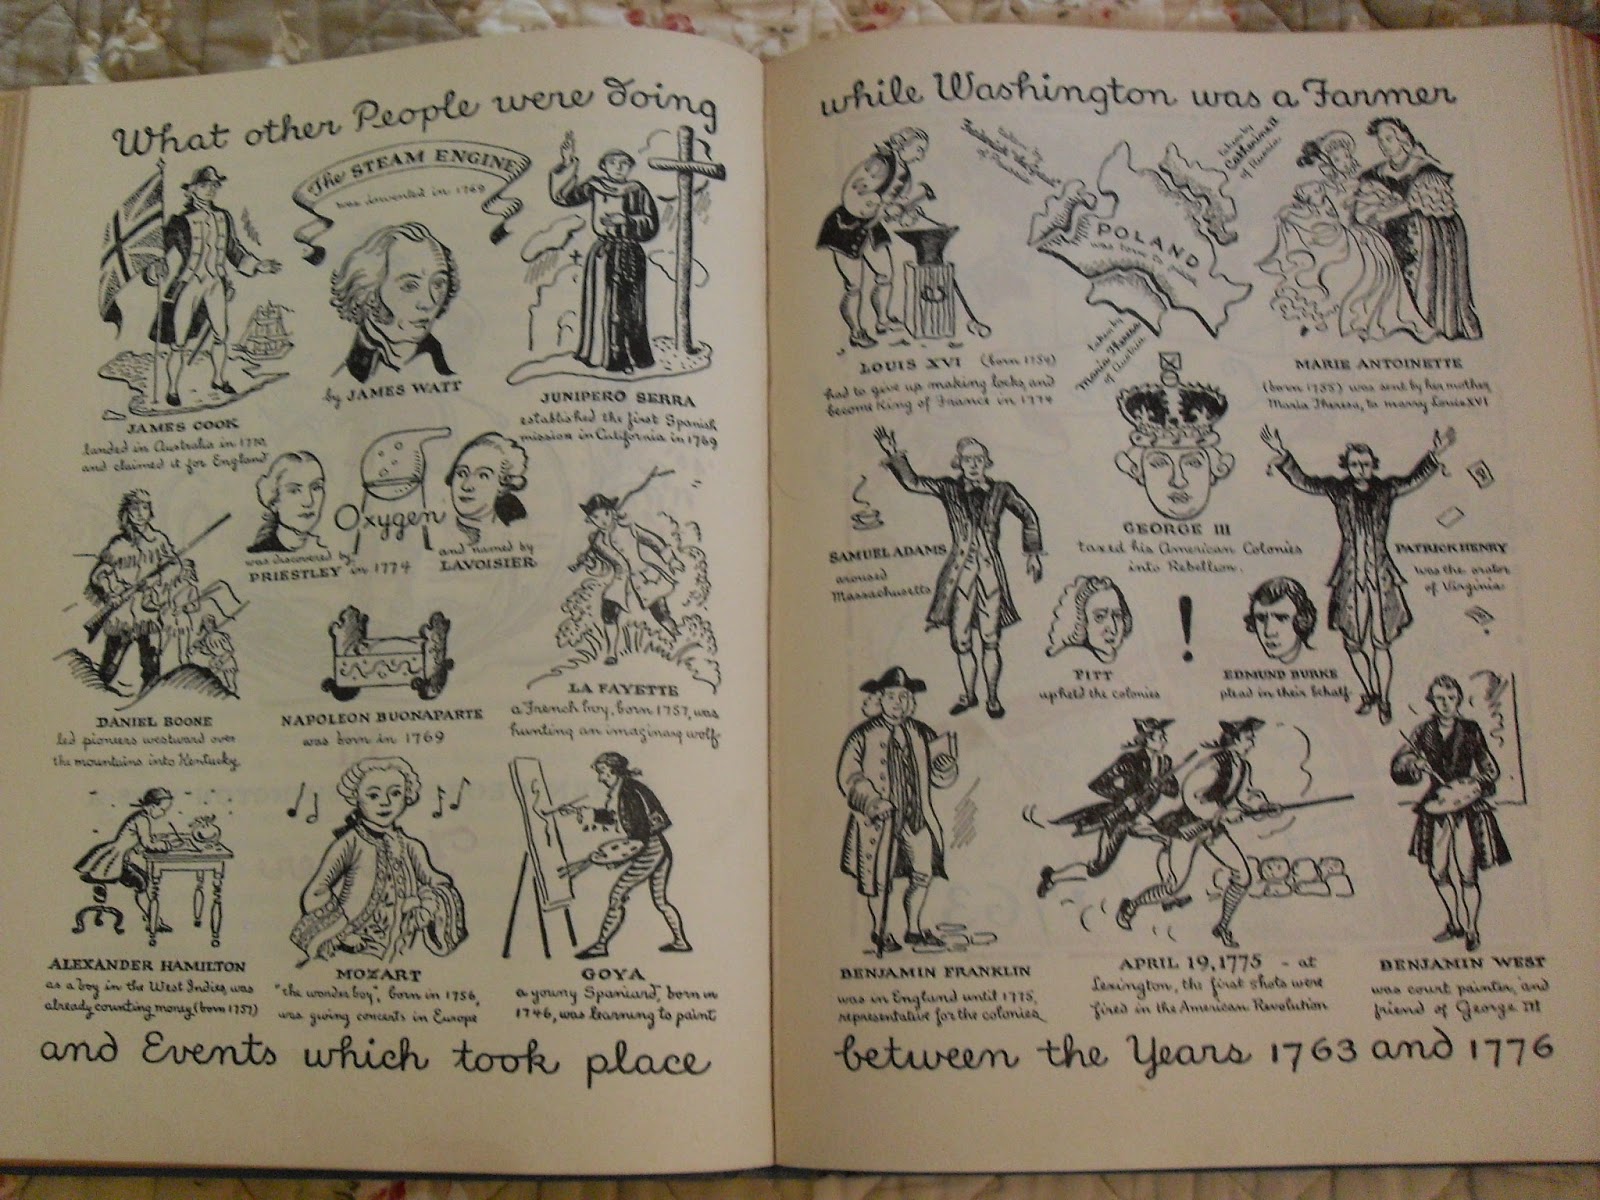 What other People were doing
The STEAM ENGINE
was invented in 1769
by JAMES WATT
JAMES COOK
landed in Australia in 1770,
and claimed it for England
JUNIPERO SERRA
established the first Spanish
mission in California in 1769
Oxygen
was discovered by
PRIESTLEY in 1774
and named by
LAVOISIER
DANIEL BOONE
led pioneers westward over
the mountains into Kentucky
NAPOLEON BUONAPARTE
was born in 1769
LA FAYETTE
a French boy, born 1757, was
hunting an imaginary wolf
ALEXANDER HAMILTON
as a boy in the West Indies, was
already counting money (born 1757)
MOZART
"the wonder boy", born in 1756,
was giving concerts in Europe
GOYA
a young Spaniard, born in
1746, was learning to paint
and Events which took place
while Washington was a Farmer
LOUIS XVI (born 1754)
had to give up making locks, and
become King of France in 1774
taken by
of Prussia
POLAND
was torn to
taken by
Catherine II
of Russia
taken by
Maria Theresa
of Austria
MARIE ANTOINETTE
(born 1755) was sent by her mother,
Maria Theresa, to marry Louis XVI
SAMUEL ADAMS
aroused
Massachusetts
GEORGE III
taxed his American Colonies
into Rebellion.
PATRICK HENRY
was the orator
of Virginia
PITT
upheld the colonies
!
EDMUND BURKE
plead in their behalf
BENJAMIN FRANKLIN
was in England until 1775,
representative for the colonies
APRIL 19, 1775 - at
Lexington, the first shots were
fired in the American Revolution
BENJAMIN WEST
was court painter, and
friend of George III
between the Years 1763 and 1776